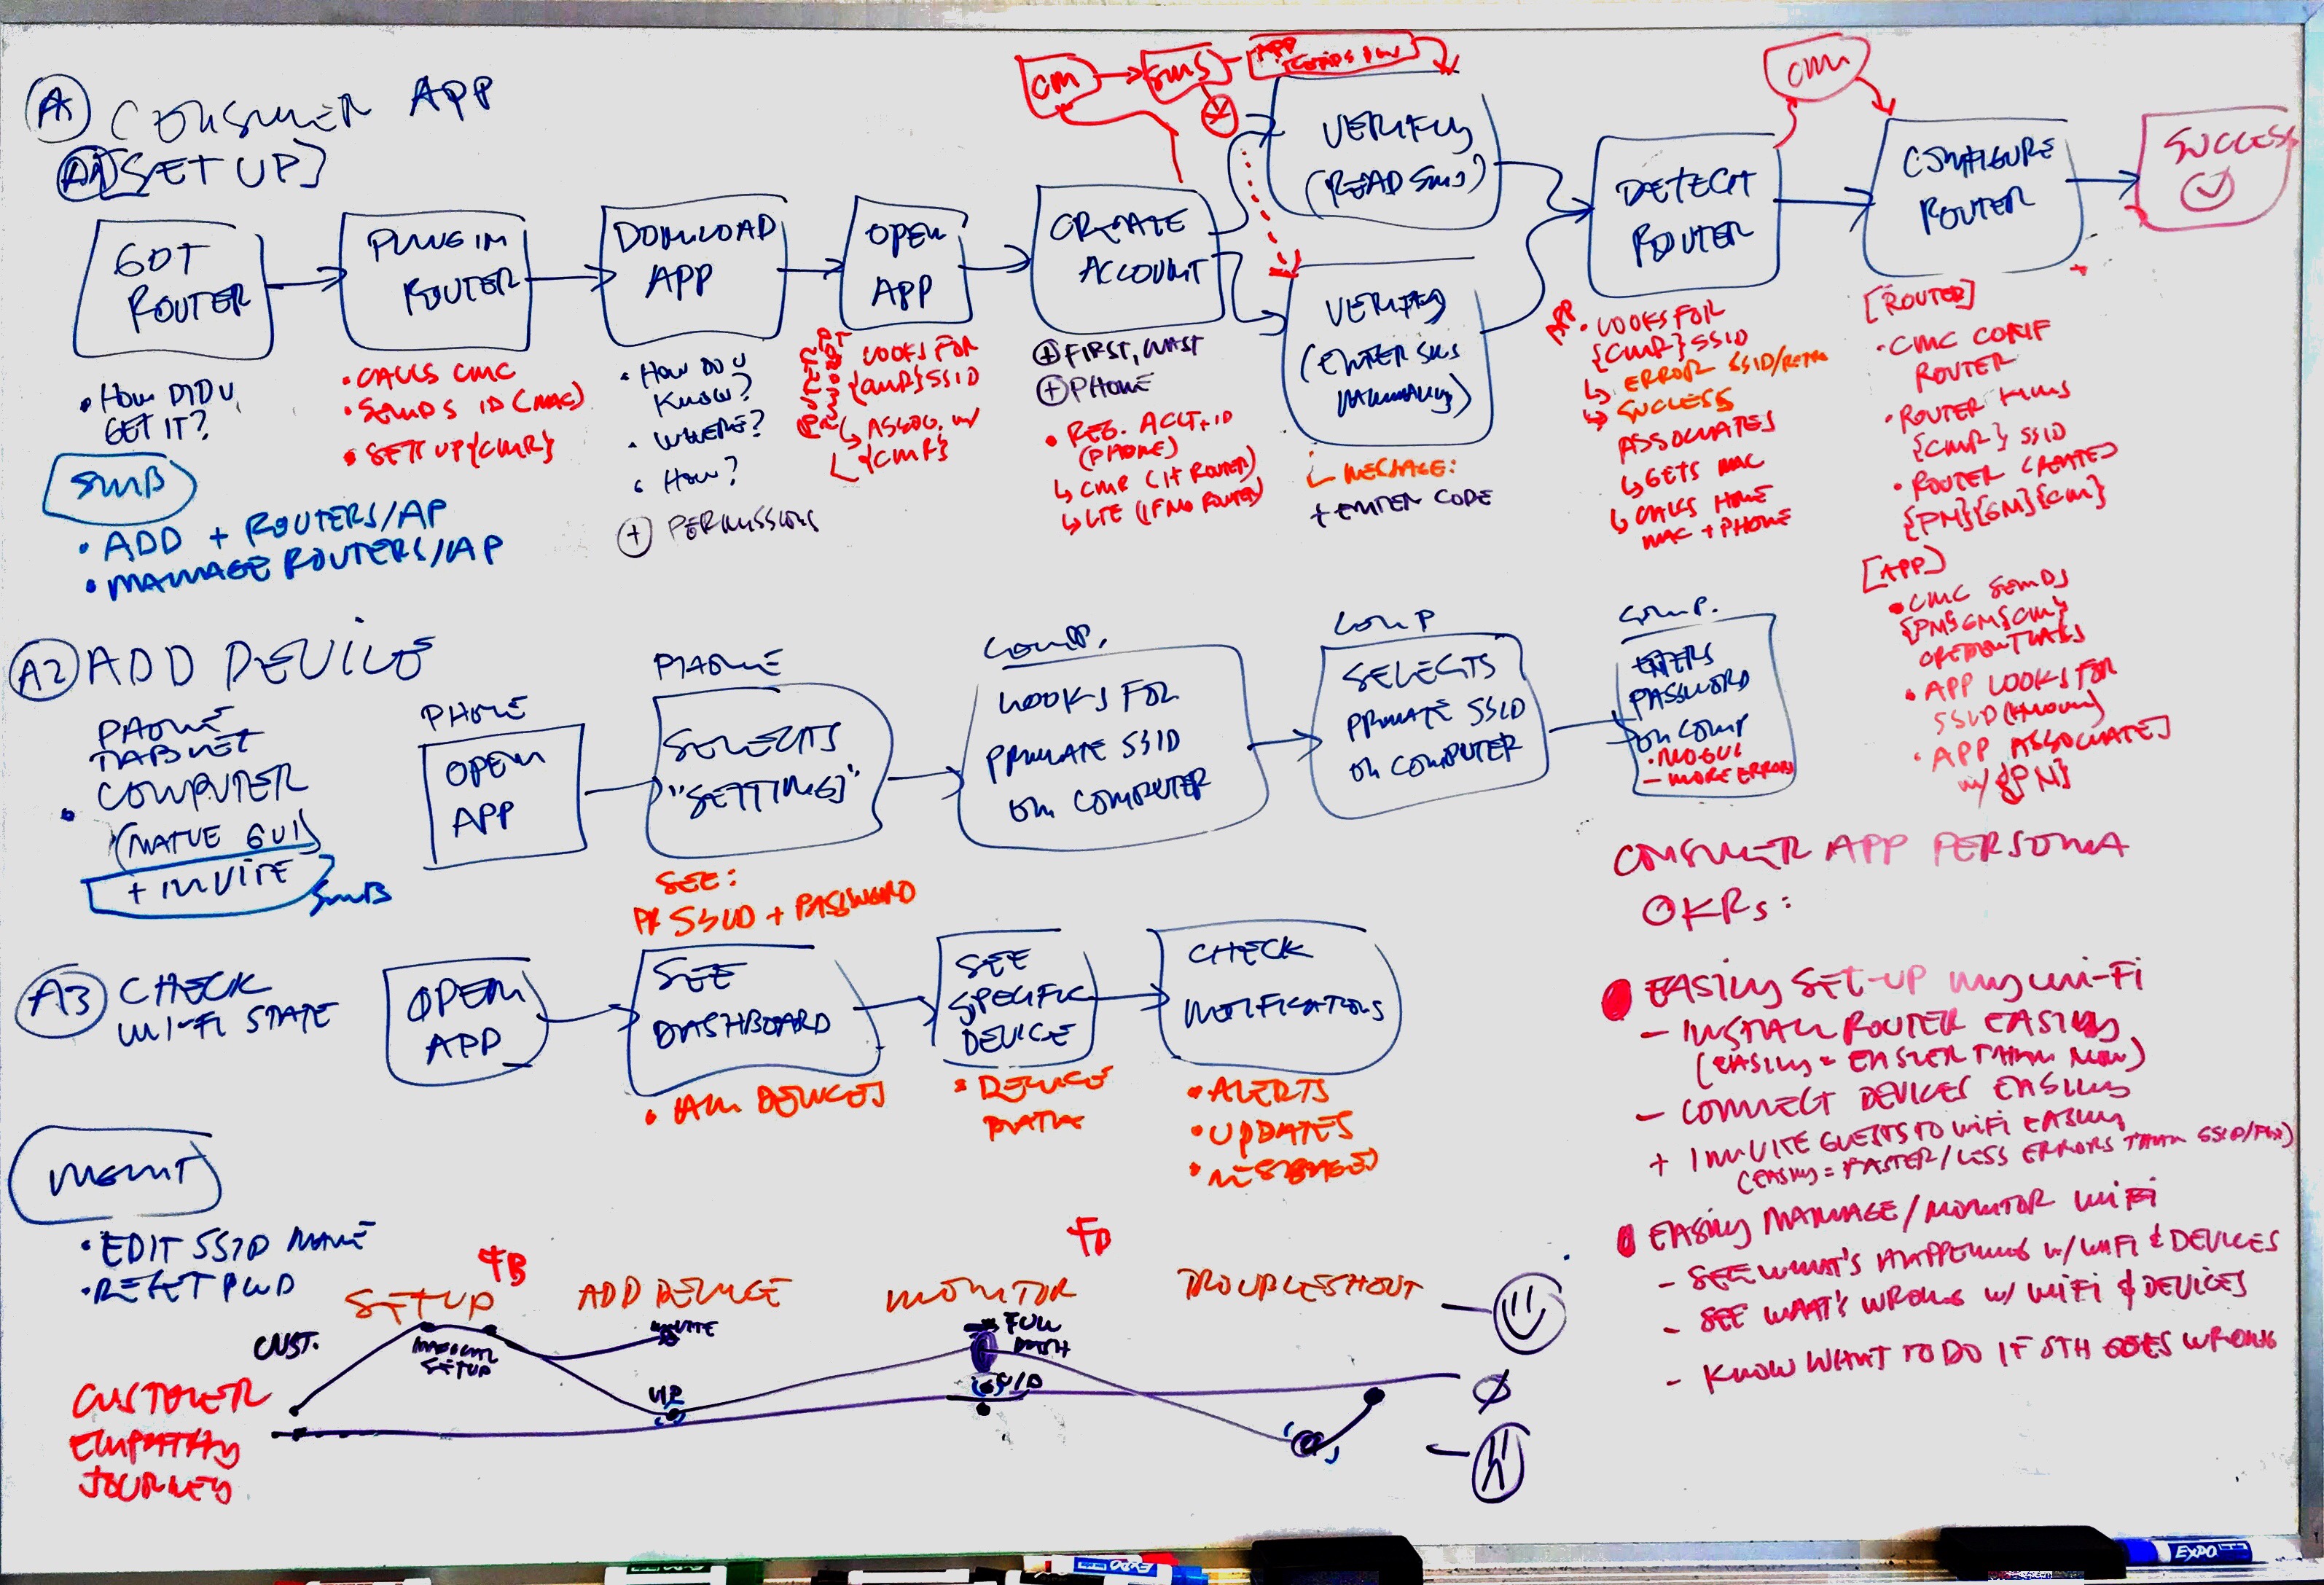 A CONSUMER APP
A1 [SET UP]
CM
SMS
APP
GOT
ROUTER
PLUG IN
ROUTER
DOWNLOAD
APP
OPEN
APP
CREATE
ACCOUNT
VERIFY
(READ SMS)
VERIFY
(ENTER SMS
MANUALLY)
DETECT
ROUTER
CMC
CONFIGURE
ROUTER
SUCCESS
• HOW DID U
GET IT?
SMB
• ADD + ROUTERS/AP
• MANAGE ROUTERS/AP
• CALLS CMC
• SENDS ID (MAC)
• SETS UP {CMR}
• HOW DO U
KNOW?
• WHERE?
• HOW?
+ PERMISSIONS
LOOKS FOR
{CMR} SSID
↳ ASSOC. W/
{CMR}
+ FIRST, LAST
+ PHONE
• REG. ACCT, ID
(PHONE)
↳ CMR (IF ROUTER)
↳ LTE (IF NO ROUTER)
MESSAGE:
+ ENTER CODE
APP
• LOOKS FOR
{CMR} SSID
↳ ERROR SSID/RETRY
↳ SUCCESS
ASSOCIATES
↳ GETS MAC
↳ CALLS HOME
MAC + PHONE
[ROUTER]
• CMC CONF
ROUTER
• ROUTER KILLS
{CMR} SSID
• ROUTER CREATES
{PN}{GN}{CM}
[APP]
• CMC SENDS
{PN}{GN}{CM}
CREDENTIALS
• APP LOOKS FOR
SSID (KNOWN)
• APP ASSOCIATES
W/ {PN}
A2 ADD DEVICE
PHONE
TABLET
• COMPUTER
(NATIVE GUI)
+ INVITE
SMB
PHONE
OPEN
APP
PHONE
SELECTS
"SETTINGS"
SEE:
PR SSID + PASSWORD
COMP.
LOOKS FOR
PRIVATE SSID
ON COMPUTER
COMP
SELECTS
PRIVATE SSID
ON COMPUTER
COMP.
ENTERS
PASSWORD
ON COMP
• NO GUI
– MORE ERRORS
A3 CHECK
WI-FI STATE
OPEN
APP
SEE
DASHBOARD
• ALL DEVICES
SEE
SPECIFIC
DEVICE
• DEVICE
CHECK
NOTIFICATIONS
• ALERTS
• UPDATES
• MESSAGES
MGMT
• EDIT SSID NAME
• RESET PWD
CONSUMER APP PERSONA
OKRs:
EASILY SET-UP MY WI-FI
– INSTALL ROUTER EASILY
(EASILY = EASIER THAN NOW)
– CONNECT DEVICES EASILY
+ INVITE GUESTS TO WIFI EASILY
(EASILY = FASTER/LESS ERRORS THAN SSID/PW)
EASILY MANAGE/MONITOR WIFI
– SEE WHAT'S HAPPENING W/ WIFI & DEVICES
– SEE WHAT'S WRONG W/ WIFI & DEVICES
– KNOW WHAT TO DO IF STH GOES WRONG
SETUP
ADD DEVICE
MONITOR
TROUBLESHOOT
CUST.
SETUP
INVITE
FULL
CUSTOMER
EMPATHY
JOURNEY
EXPO
EXPO